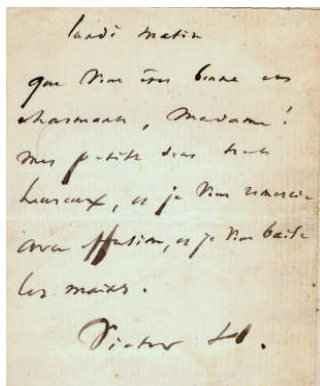 lundi matin
que vous êtes bonne et
charmante, Madame!
mes petits sont tous
heureux, et je vous remercie
avec effusion, et je vous baise
les mains.
Victor H.